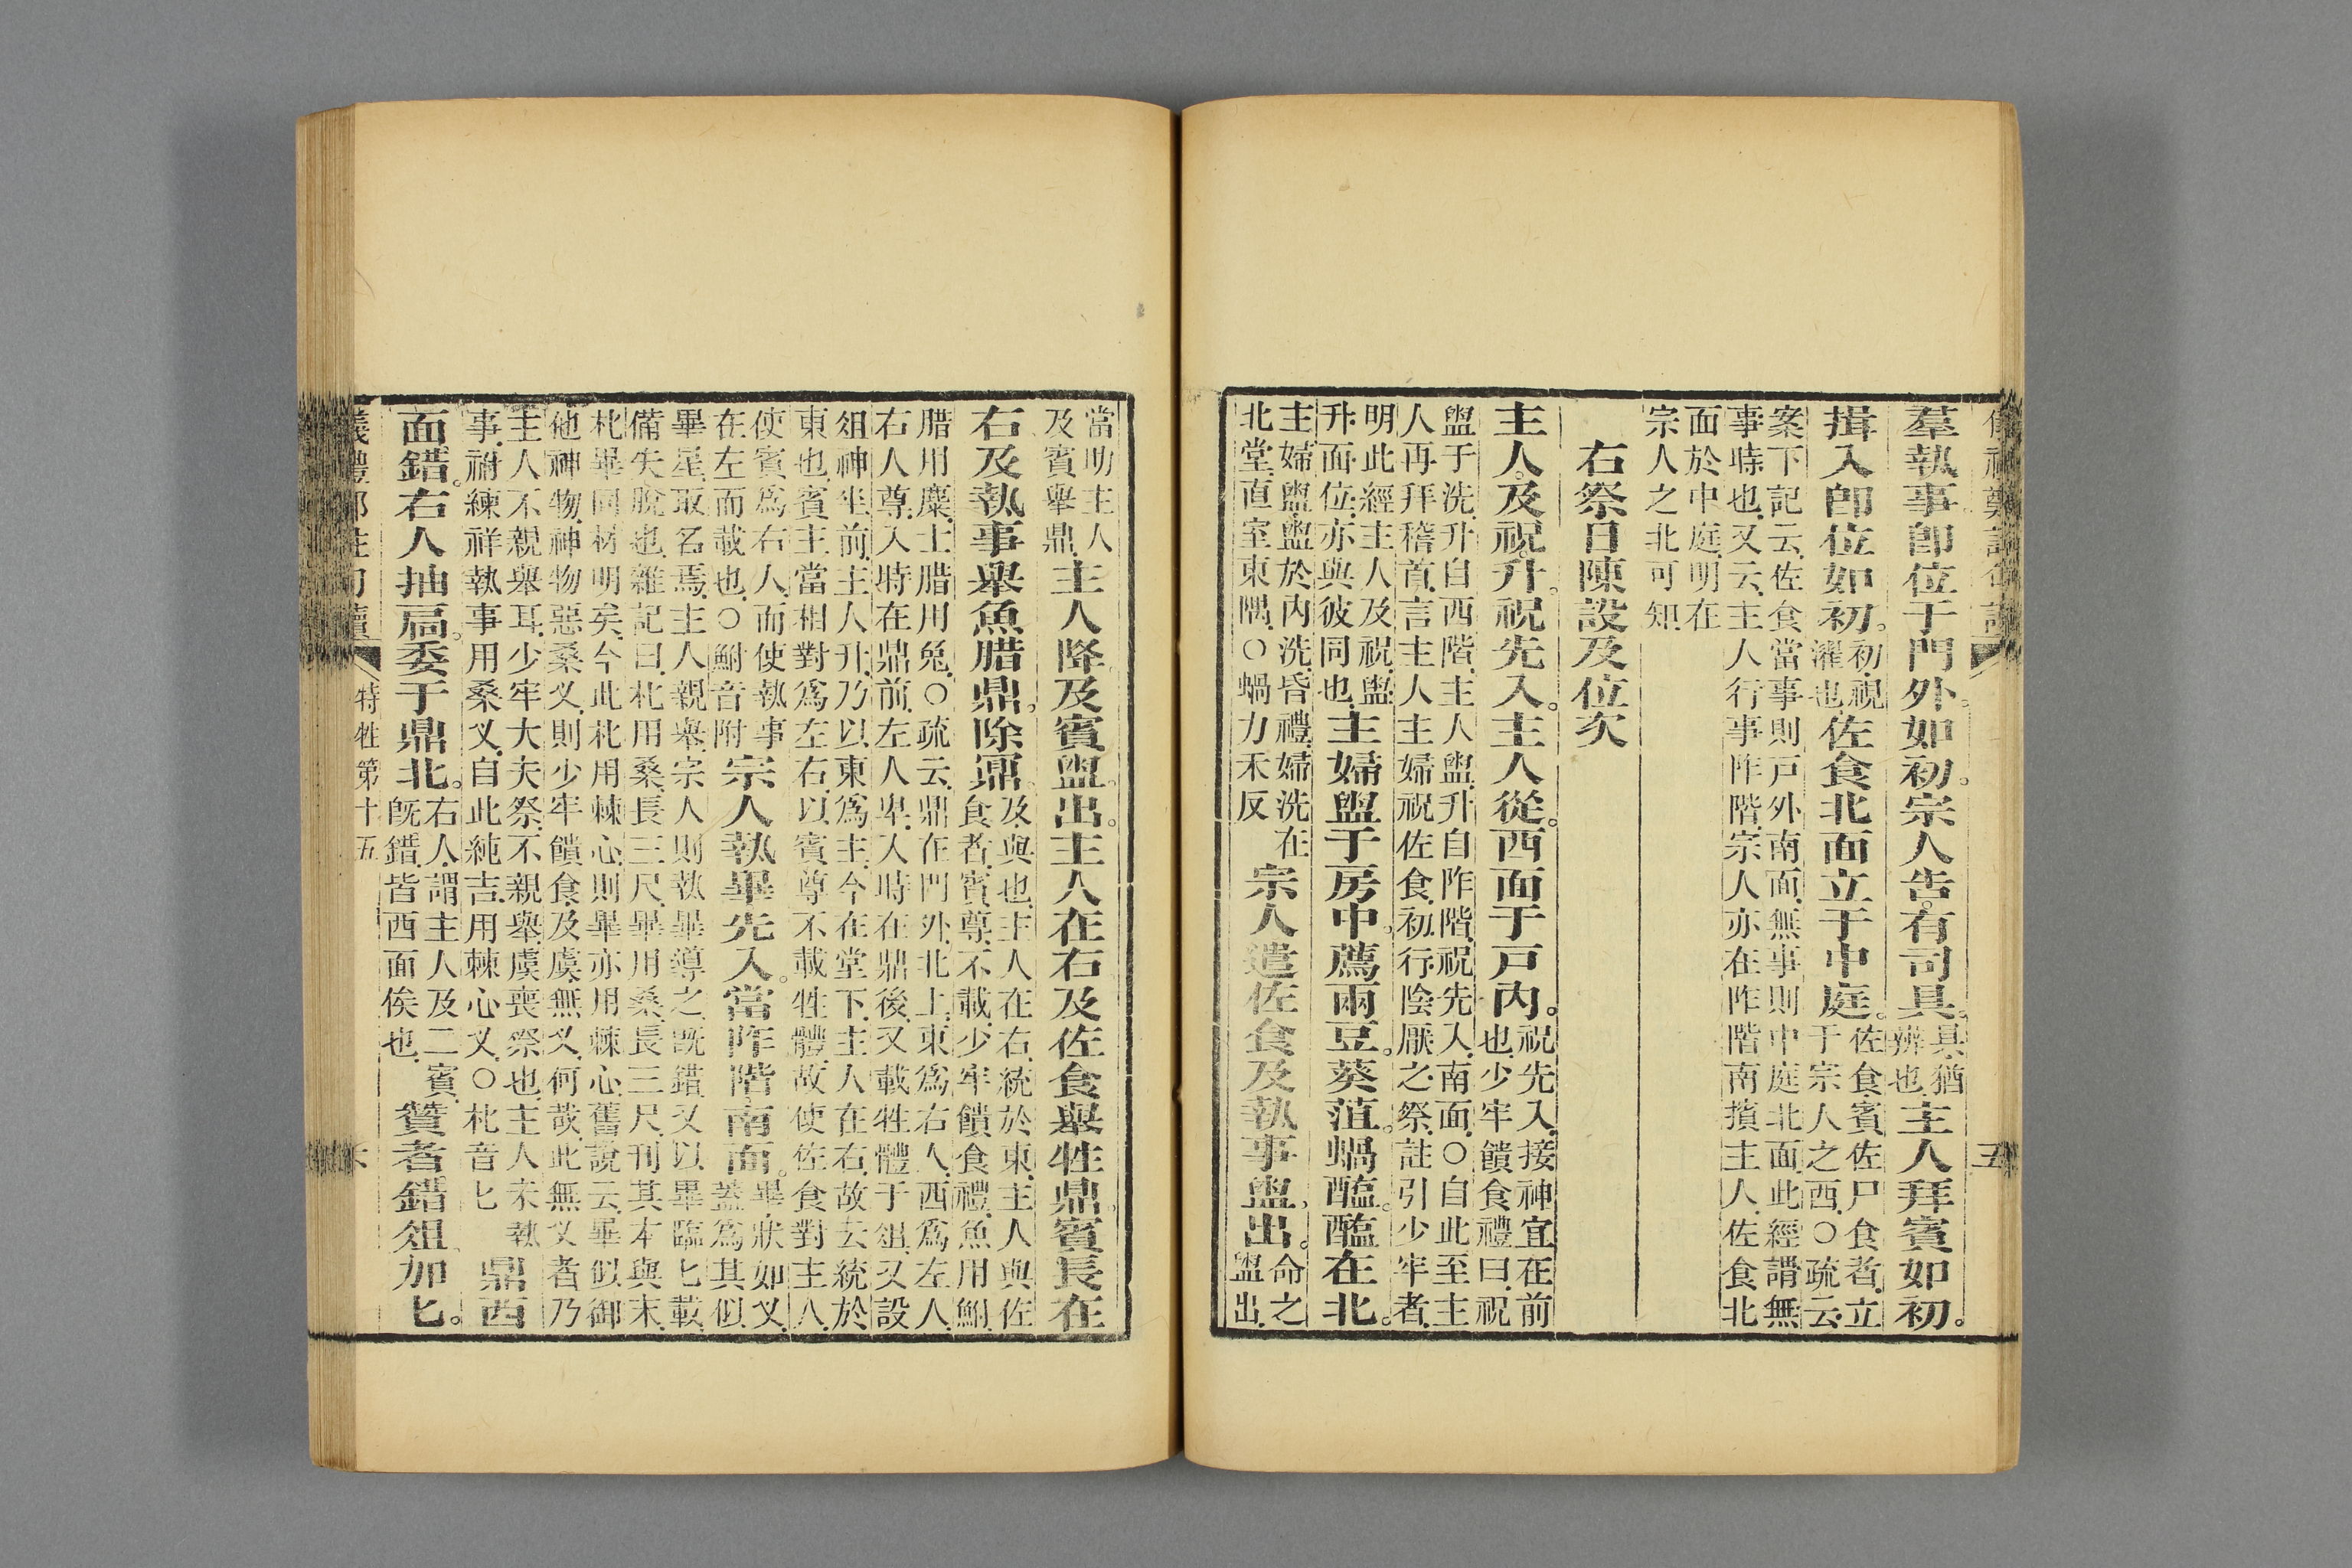 羣執事卽位于門外。如初。宗人告。有司具。具、猶辨也、主人拜賓如初。
揖入卽位如初。初、視濯也、佐食北面立于中庭。佐食、賓佐尸食者、立于宗人之西、○疏云、
案下記云、佐食當事則戸外南面、無事則中庭北面、此經謂無
事時也、又云、主人行事阼階、宗人亦在阼階南擯主人、佐食北
面於中庭、明在
宗人之北可知、
右祭日陳設及位次
主人。及祝。升。祝先入。主人從。西面于戸內。祝先入、接神宜在前也、少牢饋食禮曰、祝
盥于洗、升自西階、主人盥、升自阼階、祝先入、南面、○自此至主
人再拜稽首、言主人主婦祝佐食、初行陰厭之祭、註引少牢者、
明此經主人及祝、盥
升面位、亦與彼同也、主婦盥于房中。薦兩豆。葵菹。蝸醢。醢在北。
主婦盥、盥於內洗、昏禮、婦洗在
北堂、直室東隅、○蝸力禾反 宗人遣佐食及執事盥。出。命之盥出、
當助主人
及賓舉鼎、主人降及賓盥。出。主人在右及佐食舉牲鼎。賓長在
右及執事舉魚腊鼎。除鼏。及、與也、主人在右、統於東、主人與佐食者、賓尊、不載、少牢饋食禮、魚用鮒、
腊用麋、士腊用兔、○疏云、鼎在門外、北上、東爲右人、西爲左人、
右人尊、入時在鼎前、左人卑、入時在鼎後、又載牲體于俎、又設
俎神坐前、主人升、乃以東爲主、今在堂下、主人在右、故去統於
東也、賓主當相對爲左右、以賓尊不載牲體、故使佐食對主人、
使賓爲右人、而使執事
在左而載也、○鮒音附 宗人執畢先入。當阼階南面。畢狀如叉、蓋爲其似
畢星、取名焉、主人親舉、宗人則執畢導之、既錯、又以畢臨匕載、
備失脫也、雜記曰、朼用桑、長三尺、畢用桑、長三尺、刊其本與末、
朼畢同材明矣、今此朼用棘心、則畢亦用棘心、舊說云、畢似御
他神物、神物惡桑叉、則少牢饋食、及虞、無叉、何哉、此無叉者、乃
主人不親舉耳、少牢大夫祭、不親舉、虞喪祭也、主人未執
事、祔練祥執事用桑叉、自此純吉、用棘心叉、○朼音匕 鼎西
面錯。右人抽扃。委于鼎北。右人、謂主人及二賓、旣錯、皆西面俟也、贊者錯俎。加匕。
儀禮鄭註句讀 特牲第十五 六